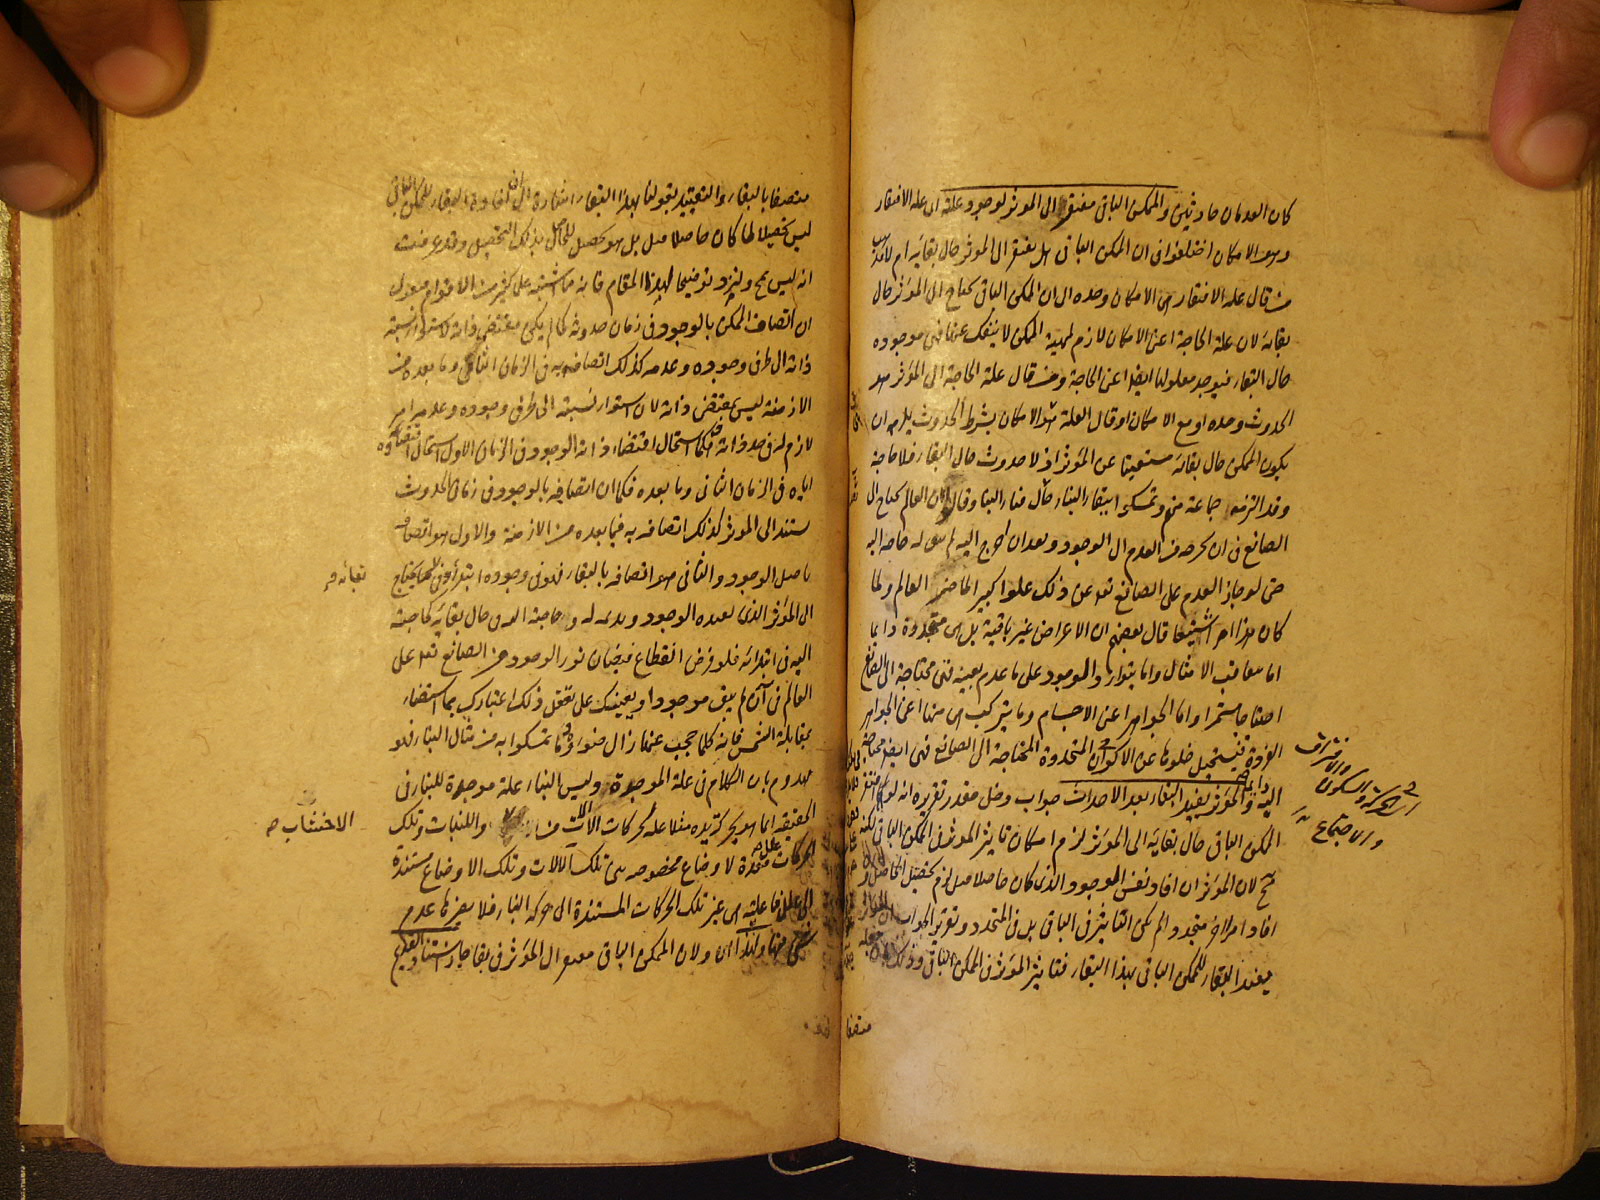 كان العدمان حادثين والممكن الباقى مفتقر الى المؤثر لوجود علته اى علة الافتقار
وهو الامكان اختلفوا فى ان الممكن الباقى هل يفتقر الى المؤثر حال بقائه ام لا فذهب
من قال علة الافتقار هى الامكان وحده الى ان الممكن الباقى يحتاج الى المؤثر حال
بقائه لان علة الحاجة اعنى الامكان لازم لمهية الممكن لا ينفك عنها فهى موجودة
حال البقاء فيوجد معلولها ايضا اعنى الحاجة ومن قال علة الحاجة الى المؤثر هو
الحدوث وحده او مع الامكان او قال العلة هو الامكان بشرط الحدوث يلزمه ان
يكون الممكن حال بقائه مستغنيا عن المؤثر اذ لا حدوث حال البقاء فلا حاجة
وقد التزمه جماعة منهم وتمسكوا ببقاء البناء حال فناء البناء وقالوا ان العالم يحتاج الى
الصانع فى ان يخرجه من العدم الى الوجود وبعد ان خرج اليه لم يبق له حاجة اليه
حتى لو جاز العدم على الصانع تعالى عن ذلك علوا كبيرا لما ضر العالم ولما
كان هذا امرا شنيعا قال بعضهم ان الاعراض غير باقية بل هى متجددة دايما
اما بتعاقب الامثال واما بتوارد الوجود على ما عدم بعينه فهى محتاجة الى الصانع
احتياجا مستمرا واما الجواهر اعنى الاجسام وما يتركب هى منها اعنى الجواهر
الفردة فيستحيل خلوها عن الاكوان المتجددة المحتاجة الى الصانع فهى ايضا محتاجة
اليه دايما والمؤثر يفيد البقاء بعد الاحداث جواب دخل مقدر تقريره انه لو افتقر
الممكن الباقى حال بقائه الى المؤثر لزم امكان تاثير المؤثر فى الممكن الباقى لكنه
مح لان المؤثر ان افاد نفس الوجود الذى كان حاصلا قبل لزم تحصيل الحاصل وان
افاد امرا آخر متجددا لم يكن التاثير فى الباقى بل فى المتجدد وتقرير الجواب ان المؤثر
يفيد البقاء للممكن الباقى بهذا البقاء فتاثير المؤثر فى الممكن الباقى وذلك
متصفا
اى الحركة والسكون والافتراق
والاجتماع
متصفا بالبقاء والتقييد بقولنا بهذا البقاء اشارة الى ان افادة البقاء للممكن الباقى
ليس تحصيلا لما كان حاصلا قبل بل هو تحصيل للحاصل بذلك التحصيل وقد عرفت
انه ليس بمح ولنزد توضيحا لهذا المقام فانه مما اشتبه على كثير من الاقوام فنقول
ان اتصاف الممكن بالوجود فى زمان حدوثه كما لم يكن مقتضى ذاته لاستواء نسبة
ذاته الى طرفى وجوده وعدمه كذلك اتصافه به فى الزمان الثانى وما بعده من
الازمنة ليس بمقتضى ذاته لان استواء نسبته الى طرفى وجوده وعدمه امر
لازم له فى حد ذاته فكما استحال اقتضاء ذاته الوجود فى الزمان الاول استحال اقتضاؤه
اياه فى الزمان الثانى وما بعده فكما ان اتصافه بالوجود فى زمان الحدوث
مستند الى المؤثر كذلك اتصافه به فيما بعده من الازمنة والاول هو اتصافه
باصل الوجود والثانى هو اتصافه بالبقاء فهو فى وجوده ابتداء وفى بقائه يحتاج
الى المؤثر الذى يفيده الوجود ويديمه له وحاجته اليه فى حال بقائه كحاجته
اليه فى ابتدائه فلو فرض انقطاع فيضان نور الوجود من الصانع تعالى على
العالم فى آن لم يبق موجودا ويعينك على تعقل ذلك اعتبارك بما استضاء
بمقابلة الشمس فانه كلما حجب عنها زال ضوؤه وما تمسكوا به من مثال البناء فهو
مهدوم بان الكلام فى علة الموجدة وليس البناء علة موجدة للبناء فى
الحقيقة انما هو بحركة يده مثلا علة لحركات الآلات من الاخشاب واللبنات وتلك
الحركات علل معدة لاوضاع مخصوصة بين تلك الآلات وتلك الاوضاع مستندة
الى علل فاعلية هى غير تلك الحركات المستندة الى حركة البناء فلا يضرها عدم
شئ منها ولهذا اى ولان الممكن الباقى مفتقر الى المؤثر فى بقائه جاز استناد القديم
بقائه صح
الاخشاب صح